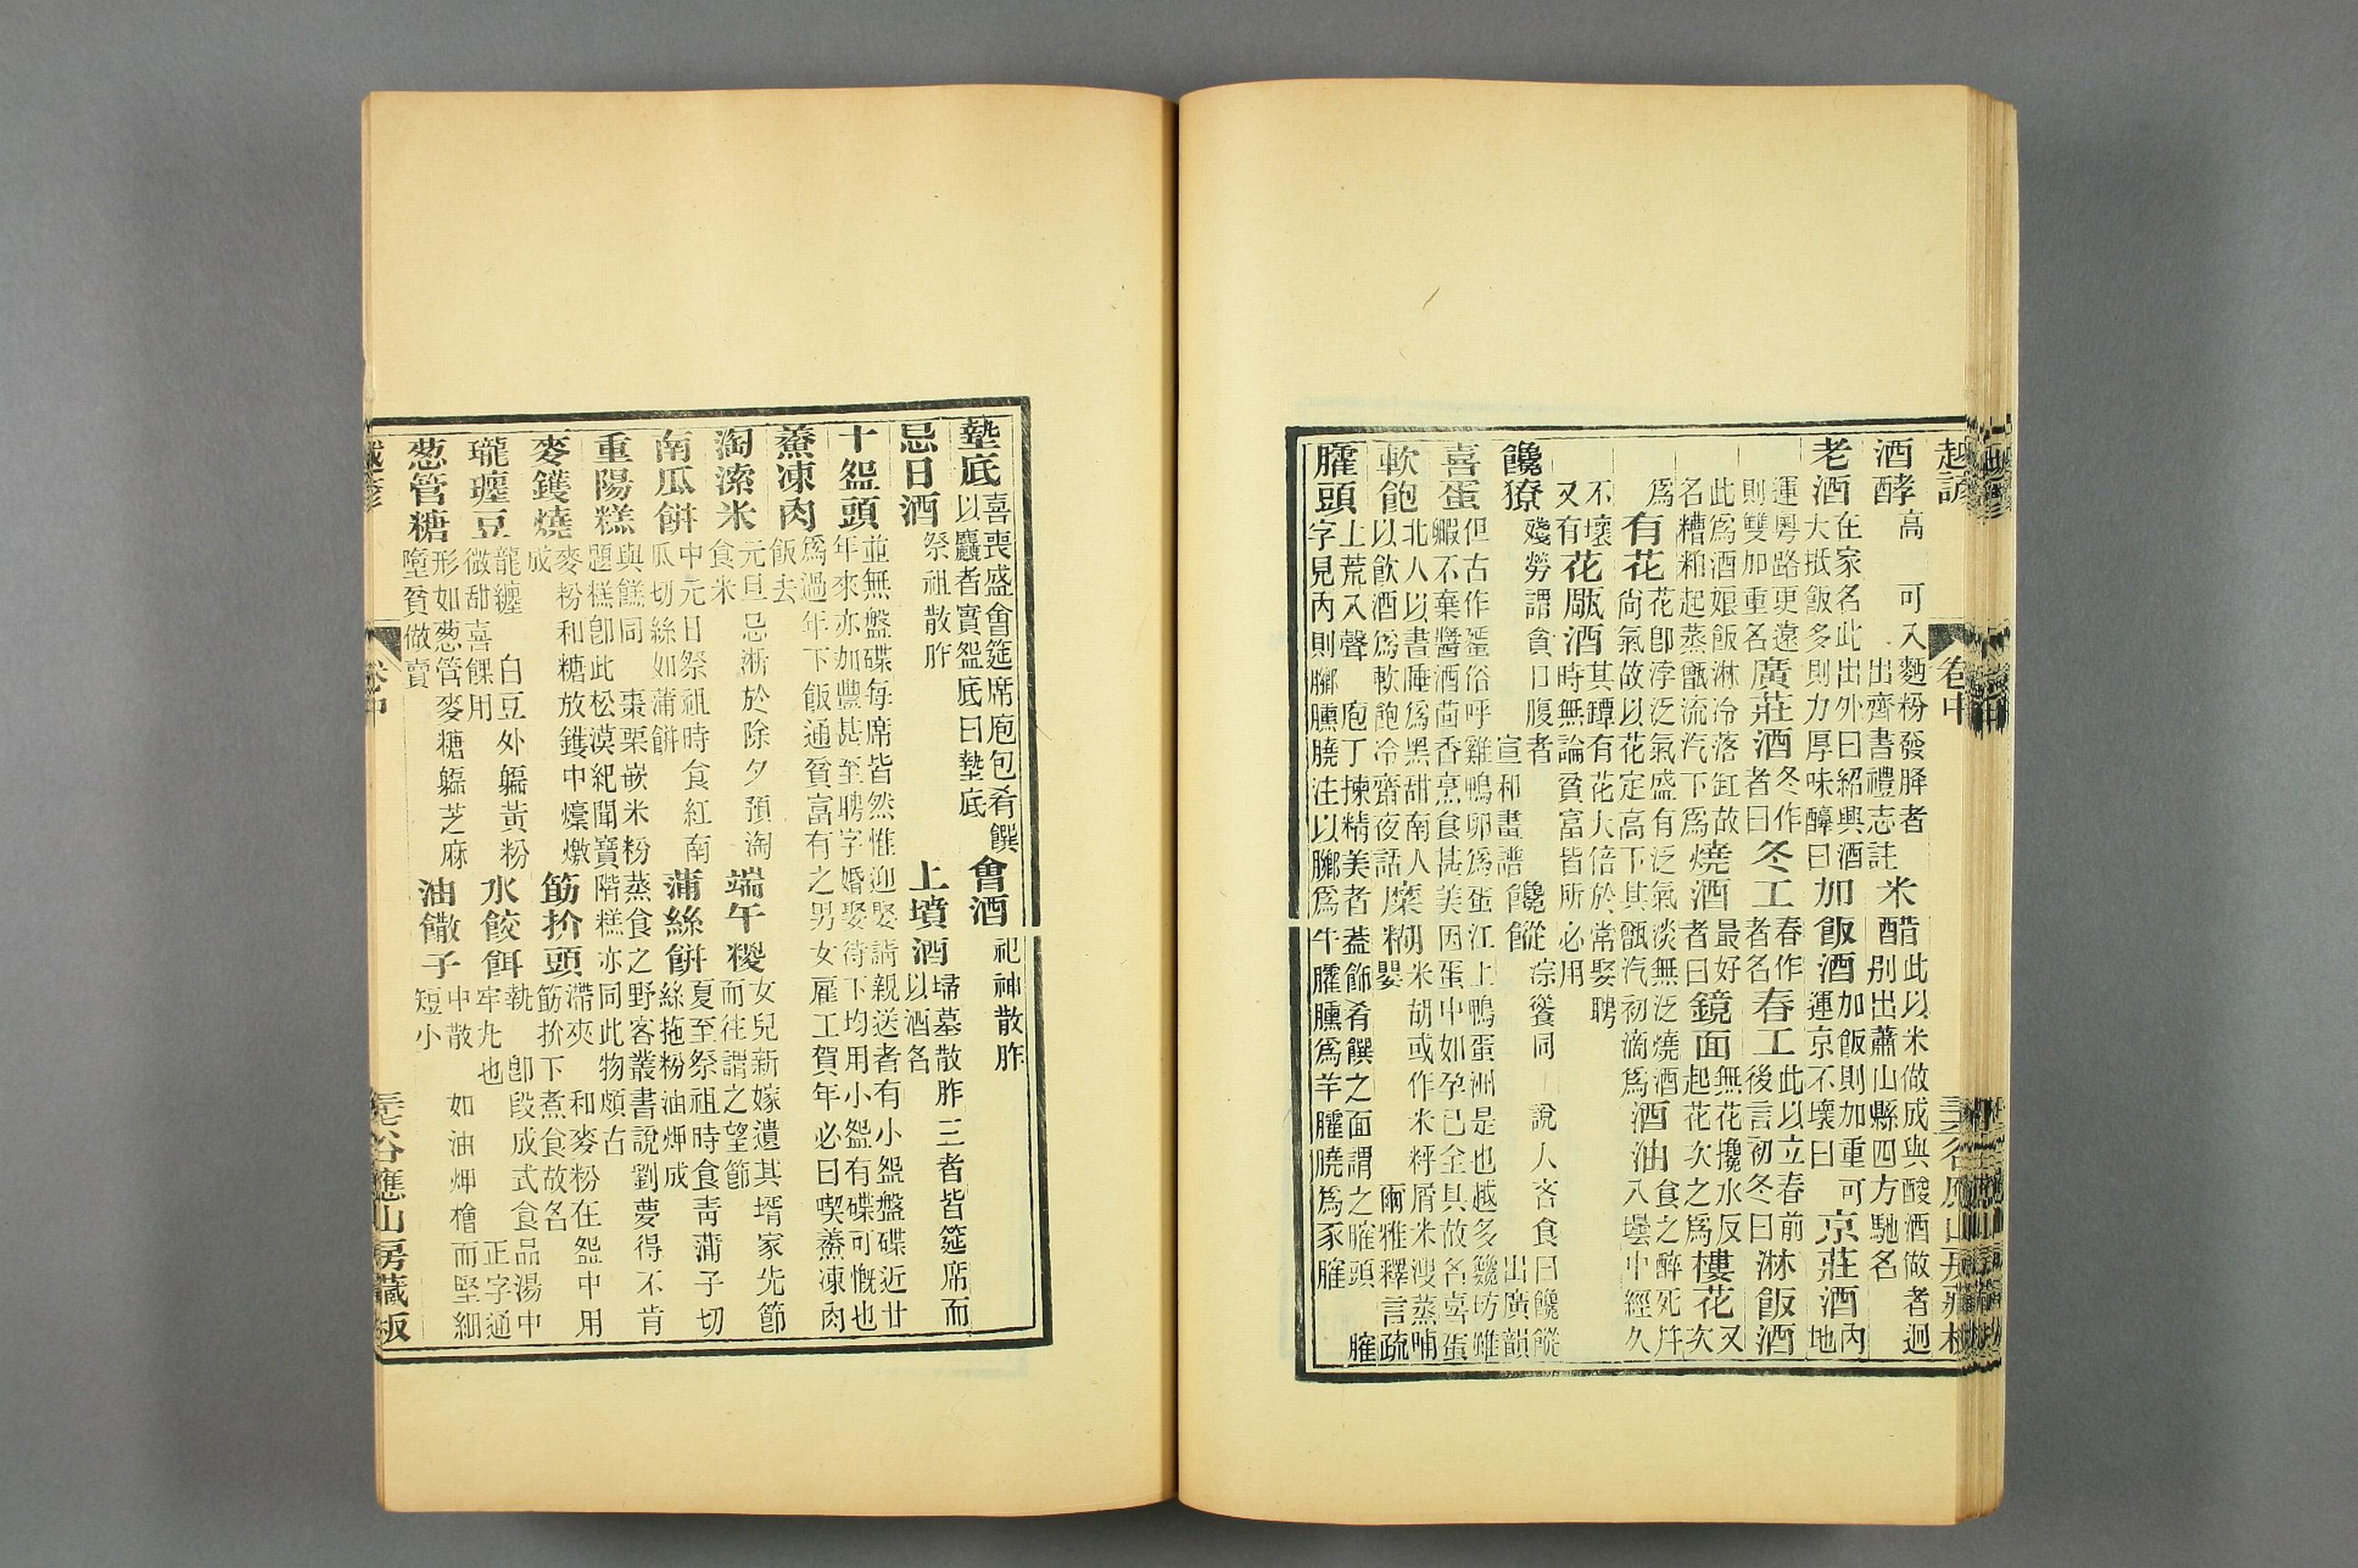 越諺 卷中
酒酵 高 可入麪粉發降者出齊書禮志註 米醋 此以米做成與酸酒做者迥別出蕭山縣四方馳名
老酒 在家名此出外曰紹興酒大抵飯多則力厚味醰曰 加飯酒 加飯則加重可運京不壞曰 京莊酒 內地
運粵路更遠則雙加重名 廣莊酒 冬作者曰 冬工 春作者名 春工 此以立春前後言初冬曰 淋飯酒
此爲酒娘飯淋冷落缸故名糟粕起蒸甑流汽下爲 燒酒 最好者曰 鏡面 無花攙水反起花次之爲 樓花 又次
爲 有花 花卽浮泛氣盛有泛氣淡無泛燒酒尚氣故以花定高下其甑汽初滴爲 酒油 食之醉死幷入壜中經久
不壞又有 花雕酒 其罈有花大倍於常娶聘時無論貧富皆所必用
饞獠 殘勞謂貪口腹者宣和畫譜 饞 淙餮同說人吝食曰饞出廣韻
喜蛋 但古作蜑俗呼雞鴨卵爲蛋江上鴨蛋洲是也越多雞坊雖不棄醬酒茴香烹食甚美因蛋中如孕已全具故名喜蛋
軟飽 北人以書睡爲黑甜南人以飲酒爲軟飽冷齋夜話 糜糊 米胡或作米粰屑米溲蒸哺爾雅釋言疏
臛頭 臛上荒入聲庖丁揀精美者蓋飾肴饌之面謂之臛頭字見內則膷臐膮注以膷爲牛臛臐爲羊臛膮爲豕臛
墊底 喜喪盛會筵席庖包肴饌以麤者實盌底曰墊底 會酒 祀神散胙
忌日酒 祭祖散胙 上墳酒 埽墓散胙三者皆筵席而以酒名
十盌頭 並無盤碟每席皆然惟迎娶請親送者有小盌盤碟近廿年來亦加豐甚至聘字婚娶待下均用小盌有碟可慨也
鯗凍肉 爲過年下飯通貧富有之男女雇工賀年必曰喫鯗凍肉飯去
淘潫米 元旦忌淅於除夕預淘食米 端午糉 女兒新嫁遺其壻家先節而往謂之望節
南瓜餅 中元日祭祖時食紅南瓜切絲如蒲餅 蒲絲餅 夏至祭祖時食青蒲子切絲拖粉油煠成
重陽糕 與餻同棗栗嵌米粉蒸食之野客叢書說劉夢得不肯題糕卽此松漠紀聞寶階糕亦同此物頗古
麥鑊燒 麥粉和糖放鑊中爊燉成 筋扴頭 滯夾和麥粉在盌中用筋扴下煮食故名
瓏瓏豆 龍纏白豆外黃粉微甜喜餜用 水餃餌 執卽段成式食品湯中牢九也正字通
葱管糖 形如葱管麥糖芝麻墮貧做賣 油饊子 中散如油煠檜而堅細短小
越諺 卷中 谷應山房藏板